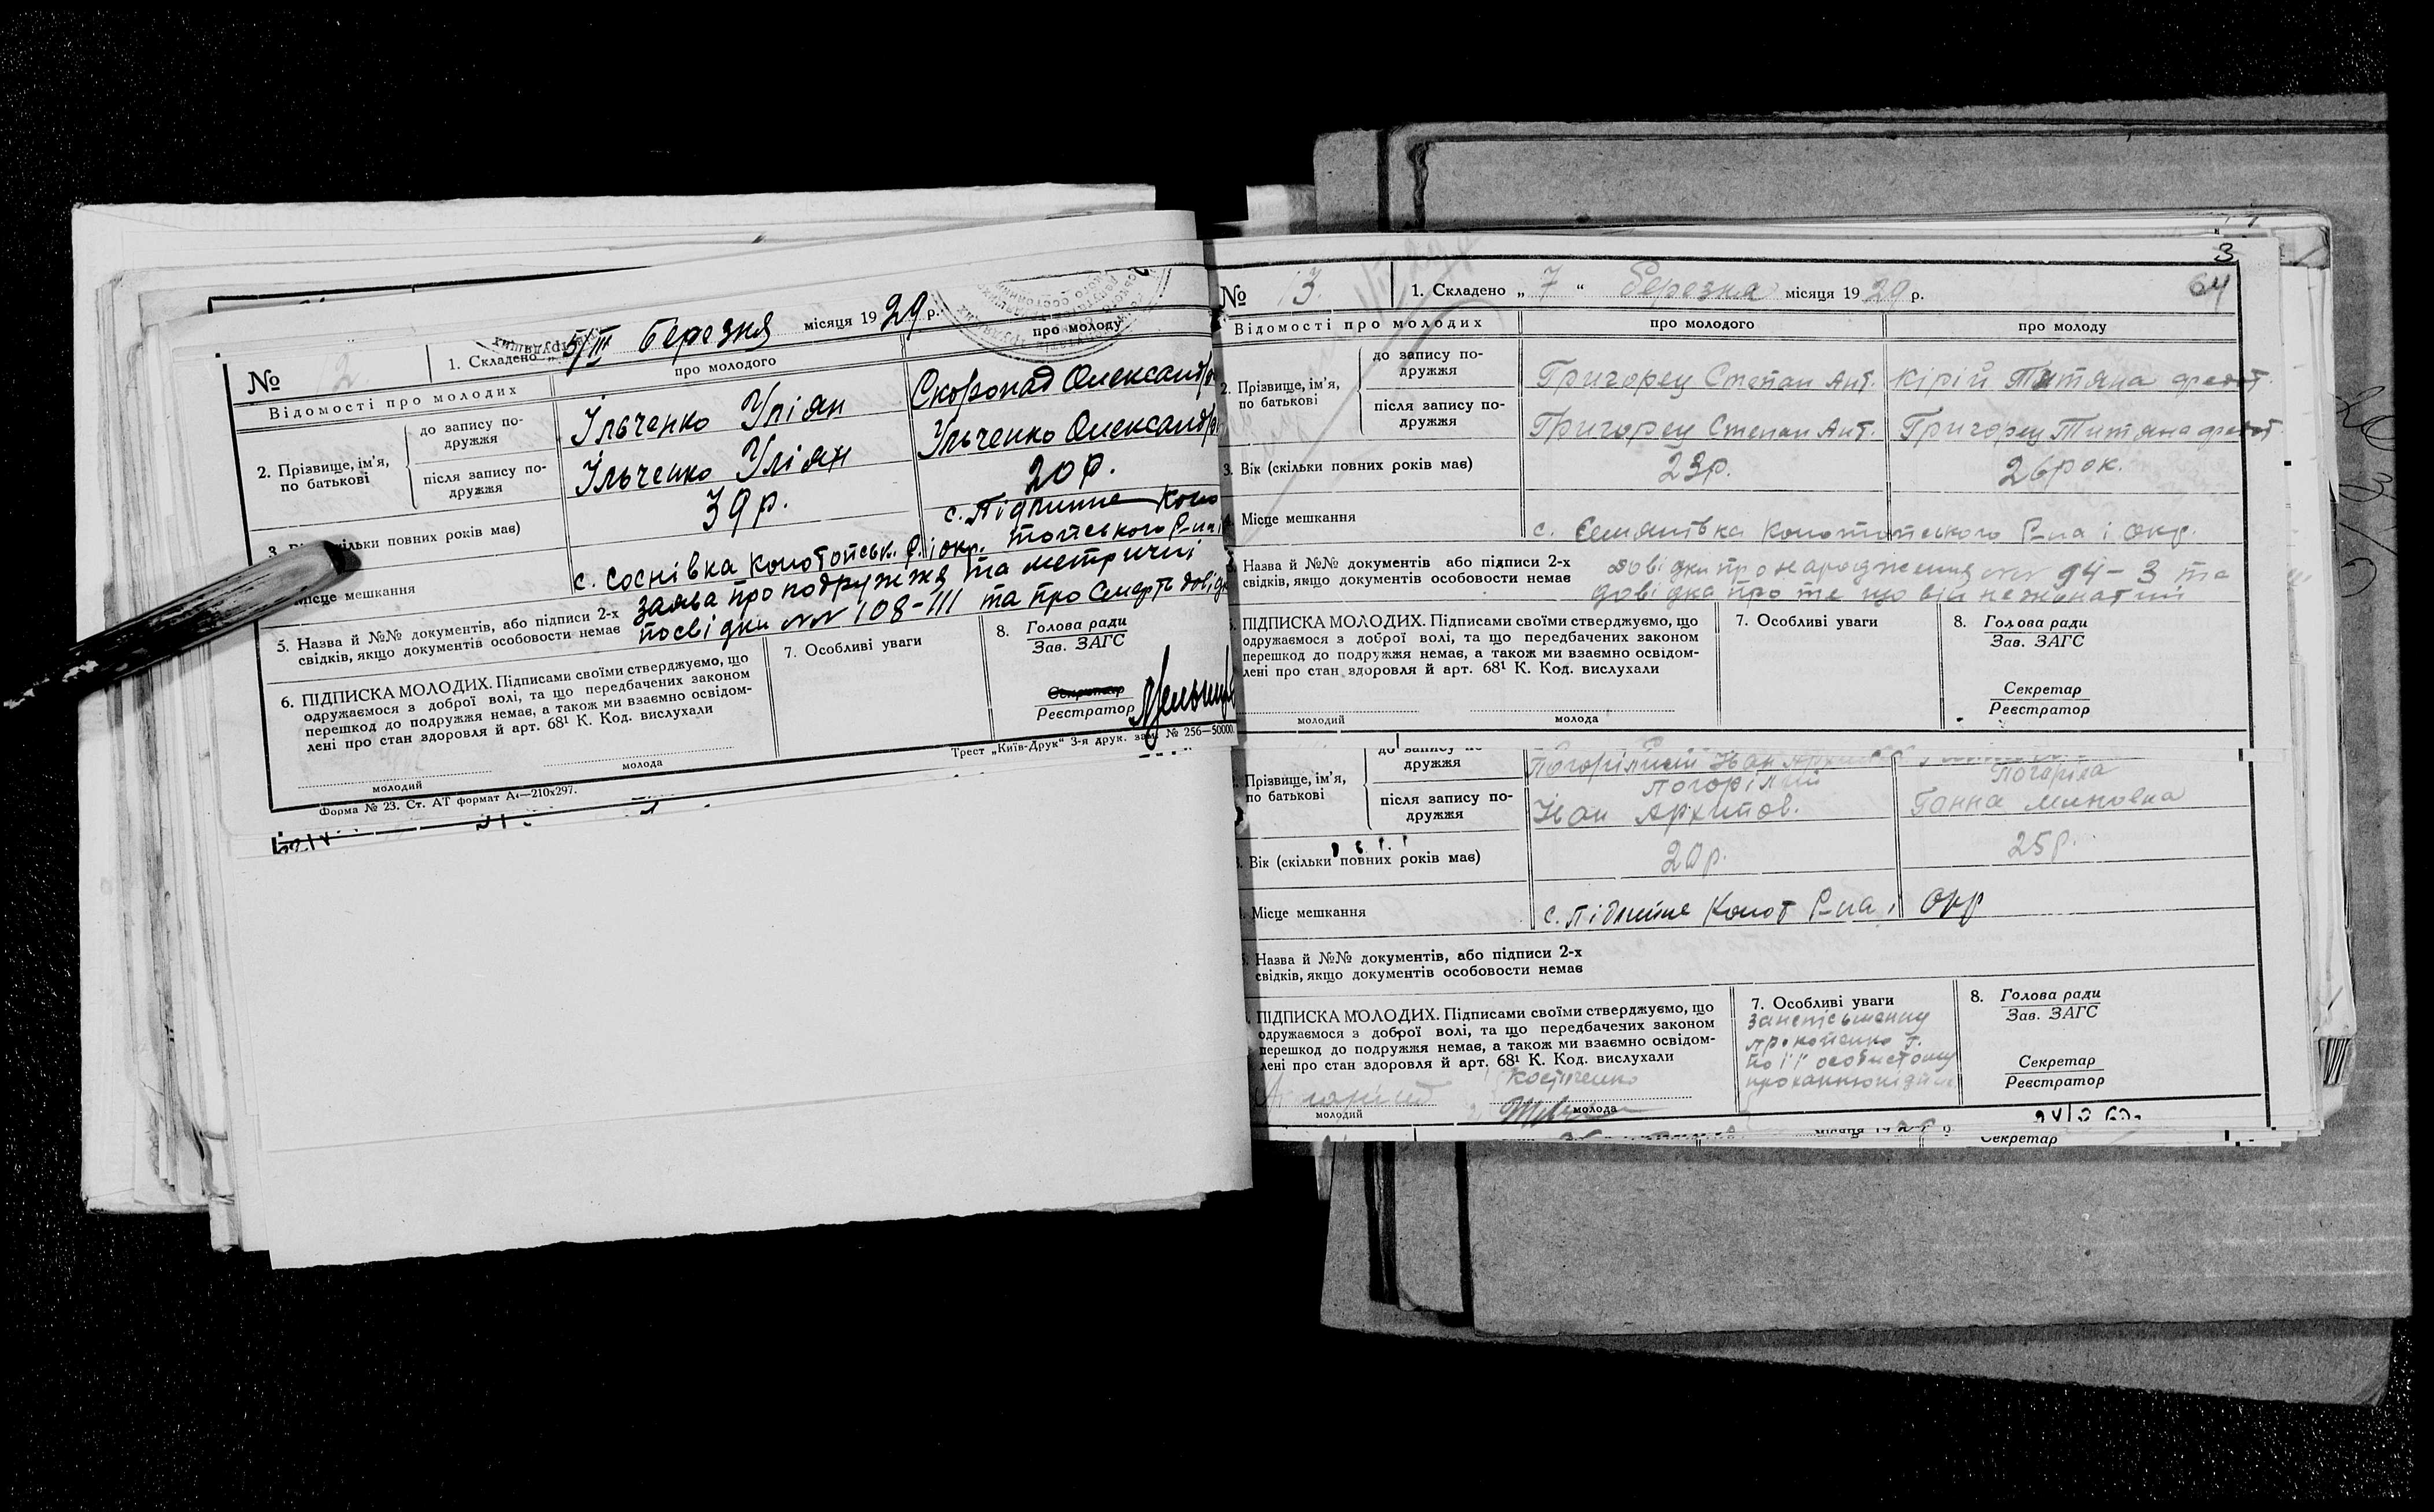 № 12
1. Складено „ 5/III Березня місяця 1929 р.
Відомості про молодих
про молодого
про молоду
2. Прізвище, ім'я,
по батькові
до запису по-
дружжя
Ільченко Уліян
Скоропад Олександр
після запису по-
дружжя
Ільченко Уліян
Ільченко Олександр
39 р.
20 р.
3. Вік (скільки повних років має)
Місце мешкання
с. Соснівка Конотопськ. Р. і окр.
с. Підлипне Коно
топського Р-на і
5. Назва й №№ документів, або підписи 2-х
свідків, якщо документів особовости немає
заява про подружжя та метричні
посвідки №№ 108-111 та про смерть довідк
6. ПІДПИСКА МОЛОДИХ. Підписами своїми стверджуємо, що
одружаємося з доброї волі, та що передбачених законом
перешкод до подружжя немає, а також ми взаємно освідом-
лені про стан здоровля й арт. 68¹ К. Код. вислухали
молодий
молода
7. Особливі уваги
8. Голова ради
Зав. ЗАГС
Секретар
Реєстратор
Форма № 23. Ст. АТ формат А₄—210х297.
Трест „Київ-Друк“ 3-я друк. зам. № 256—50000.
3
64
№ 13.
1. Складено „ 7 “ Березня місяця 1929 р.
Відомості про молодих
про молодого
про молоду
2. Прізвище, ім'я,
по батькові
до запису по-
дружжя
Григорец Степан Ант.
Кірій Титяна федот.
після запису по-
дружжя
Григорец Степан Ант.
Григорец Титяна федот
3. Вік (скільки повних років має)
23р.
26 рок.
Місце мешкання
с. Семянівка Конотопського Р-на і окр.
Назва й №№ документів або підписи 2-х
свідків, якщо документів особовости немає
довідки про народження №№ 94-3 та
довідка про те що він нежонатий
ПІДПИСКА МОЛОДИХ. Підписами своїми стверджуємо, що
одружаємося з доброї волі, та що передбачених законом
перешкод до подружжя немає, а також ми взаємно освідом-
лені про стан здоровля й арт. 68¹ К. Код. вислухали
молодий
молода
7. Особливі уваги
8. Голова ради
Зав. ЗАГС
Секретар
Реєстратор
Прізвище, ім'я,
по батькові
до запису по-
дружжя
Погорілий Іван
після запису по-
дружжя
Погорілий
Іван Архипов.
Погоріла
Ганна
Вік (скільки повних років має)
20р.
25р.
Місце мешкання
с. Підлипне Конот Р-на і Окр
Назва й №№ документів, або підписи 2-х
свідків, якщо документів особовости немає
ПІДПИСКА МОЛОДИХ. Підписами своїми стверджуємо, що
одружаємося з доброї волі, та що передбачених законом
перешкод до подружжя немає, а також ми взаємно освідом-
лені про стан здоровля й арт. 68¹ К. Код. вислухали
молодий
молода
7. Особливі уваги
по її особистому
8. Голова ради
Зав. ЗАГС
Секретар
Реєстратор
місяця
Секретар